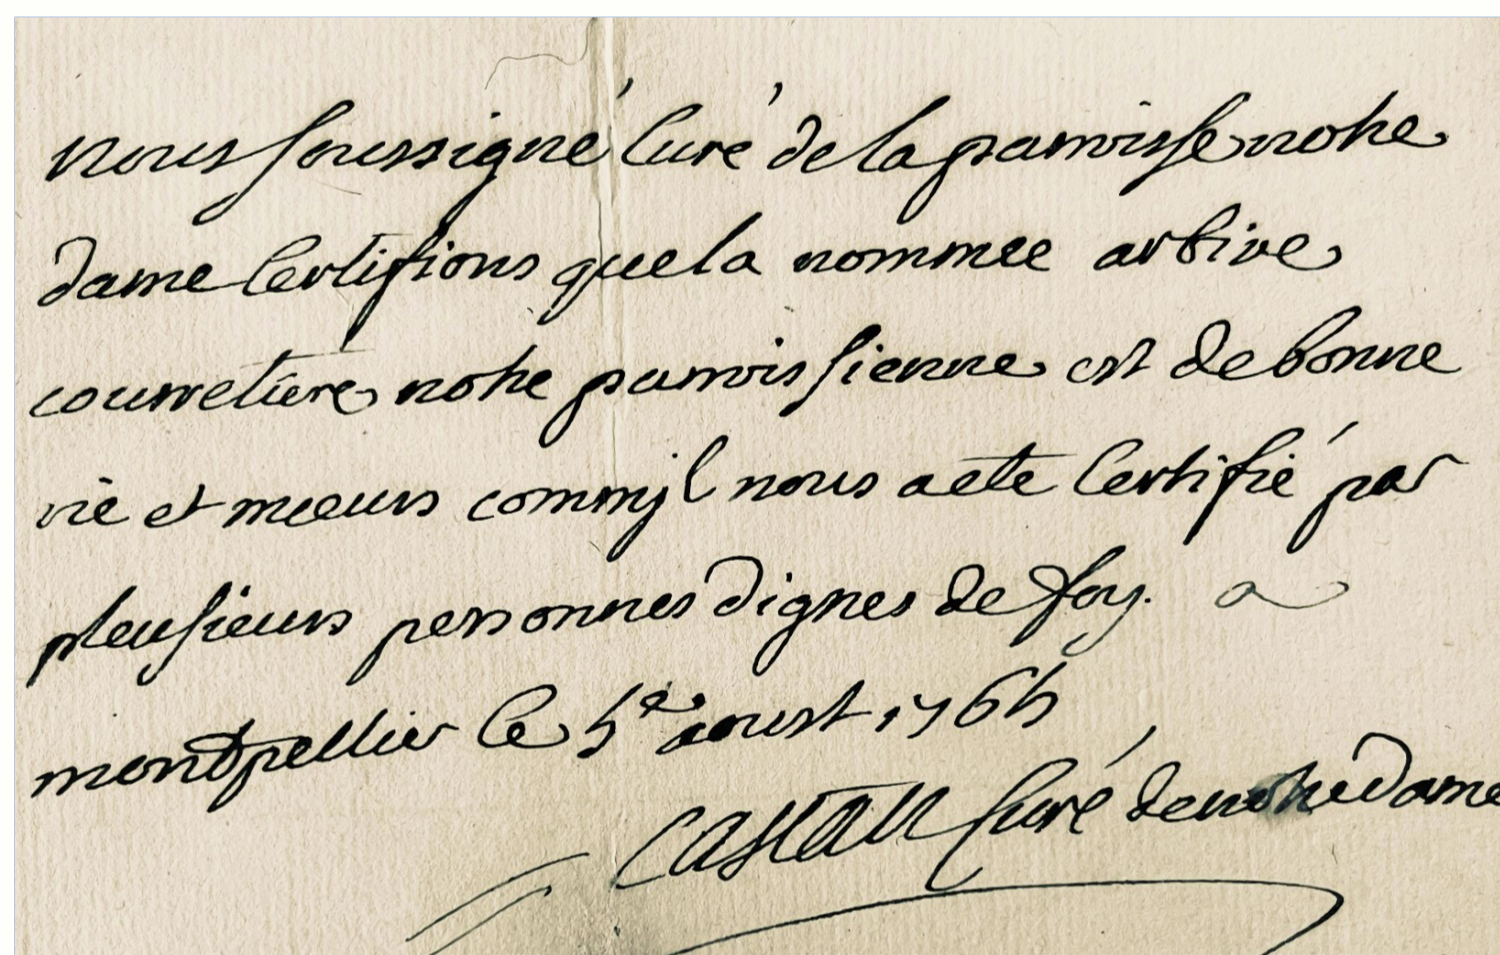 nous soussigné Curé de la parroisse notre
dame Certifions que la nommée
notre parroissienne est de bonne
vie et mœurs comm jl nous a ete Certifié par
plusieurs personnes dignes de foy. a
montpellier le 5e aoust 1765
CASTAN Curé de notre dame